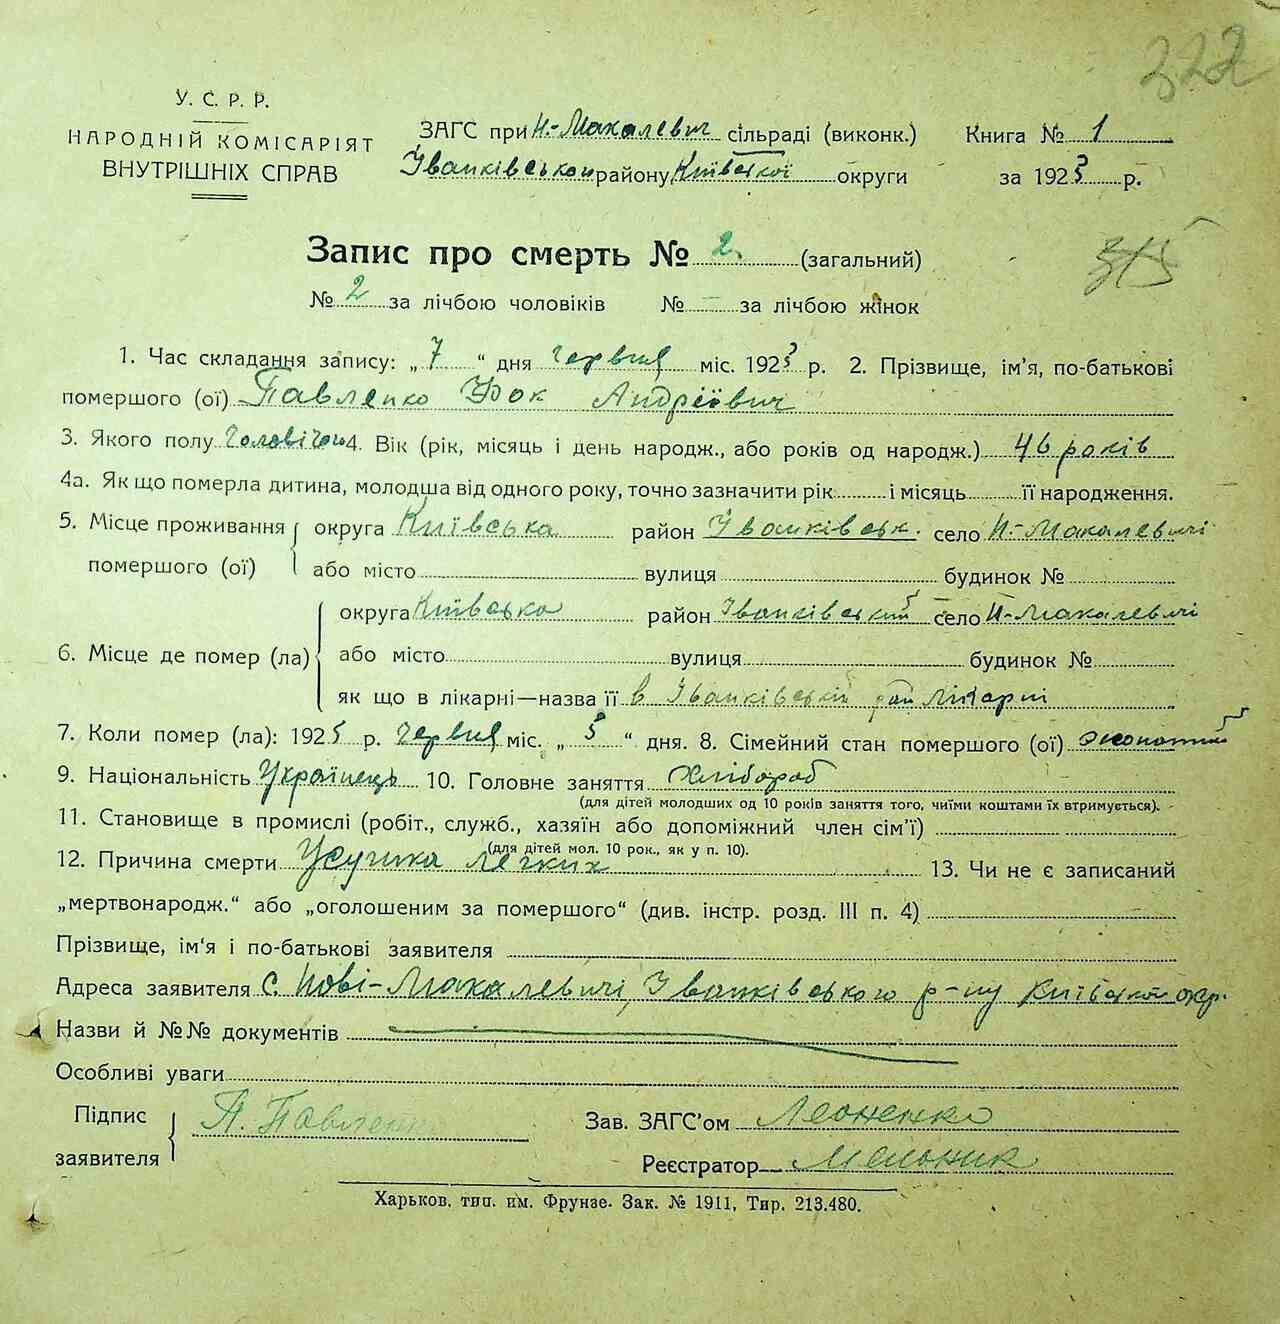 322
У. С. Р. Р.
НАРОДНІЙ КОМІСАРІЯТ
ВНУТРІШНІХ СПРАВ
ЗАГС при Н.-Макалевич сільраді (виконк.)
Іванківськом району Київської округи
Книга № 1
за 1925 р.
Запис про смерть № 2. (загальний)
315
№ 2 за лічбою чоловіків № – за лічбою жінок
1. Час складання запису: „ 7 “ дня червня міс. 1925 р. 2. Прізвище, ім’я, по-батькові
помершого (ої) Павленко Фок Андрієвич
3. Якого полу Чоловічои 4. Вік (рік, місяць і день народж., або років од народж.) 46 років
4а. Як що померла дитина, молодша від одного року, точно зазначити рік і місяць її народження.
5. Місце проживання округа Київська район Іванківськ. село Н.-Макалевичі
помершого (ої) або місто вулиця будинок №
округа Київська район Іванківський село Н-Макалевичі
6. Місце де помер (ла) або місто вулиця будинок №
як що в лікарні—назва її в Іванківській рай лікарні
7. Коли помер (ла): 1925 р. червня міс. „ 5 “ дня. 8. Сімейний стан помершого (ої)
9. Національність Українець 10. Головне заняття Хлібороб
(для дітей молодших од 10 років заняття того, чиїми коштами їх втримується).
11. Становище в промислі (робіт., служб., хазяїн або допоміжний член сім’ї)
(для дітей мол. 10 рок., як у п. 10).
12. Причина смерти легких 13. Чи не є записаний
„мертвонародж.“ або „оголошеним за помершого“ (див. інстр. розд. III п. 4)
Прізвище, ім‘я і по-батькові заявителя
Адреса заявителя с. Нові-Макалевичі, Іванківського р-ну Київської окр.
Назви й №№ документів
Особливі уваги
Підпис П. Павленко Зав. ЗАГС’ом Леоненко
заявителя Реєстратор Мельник
Харьков, тип. им. Фрунзе. Зак. № 1911, Тир. 213.480.